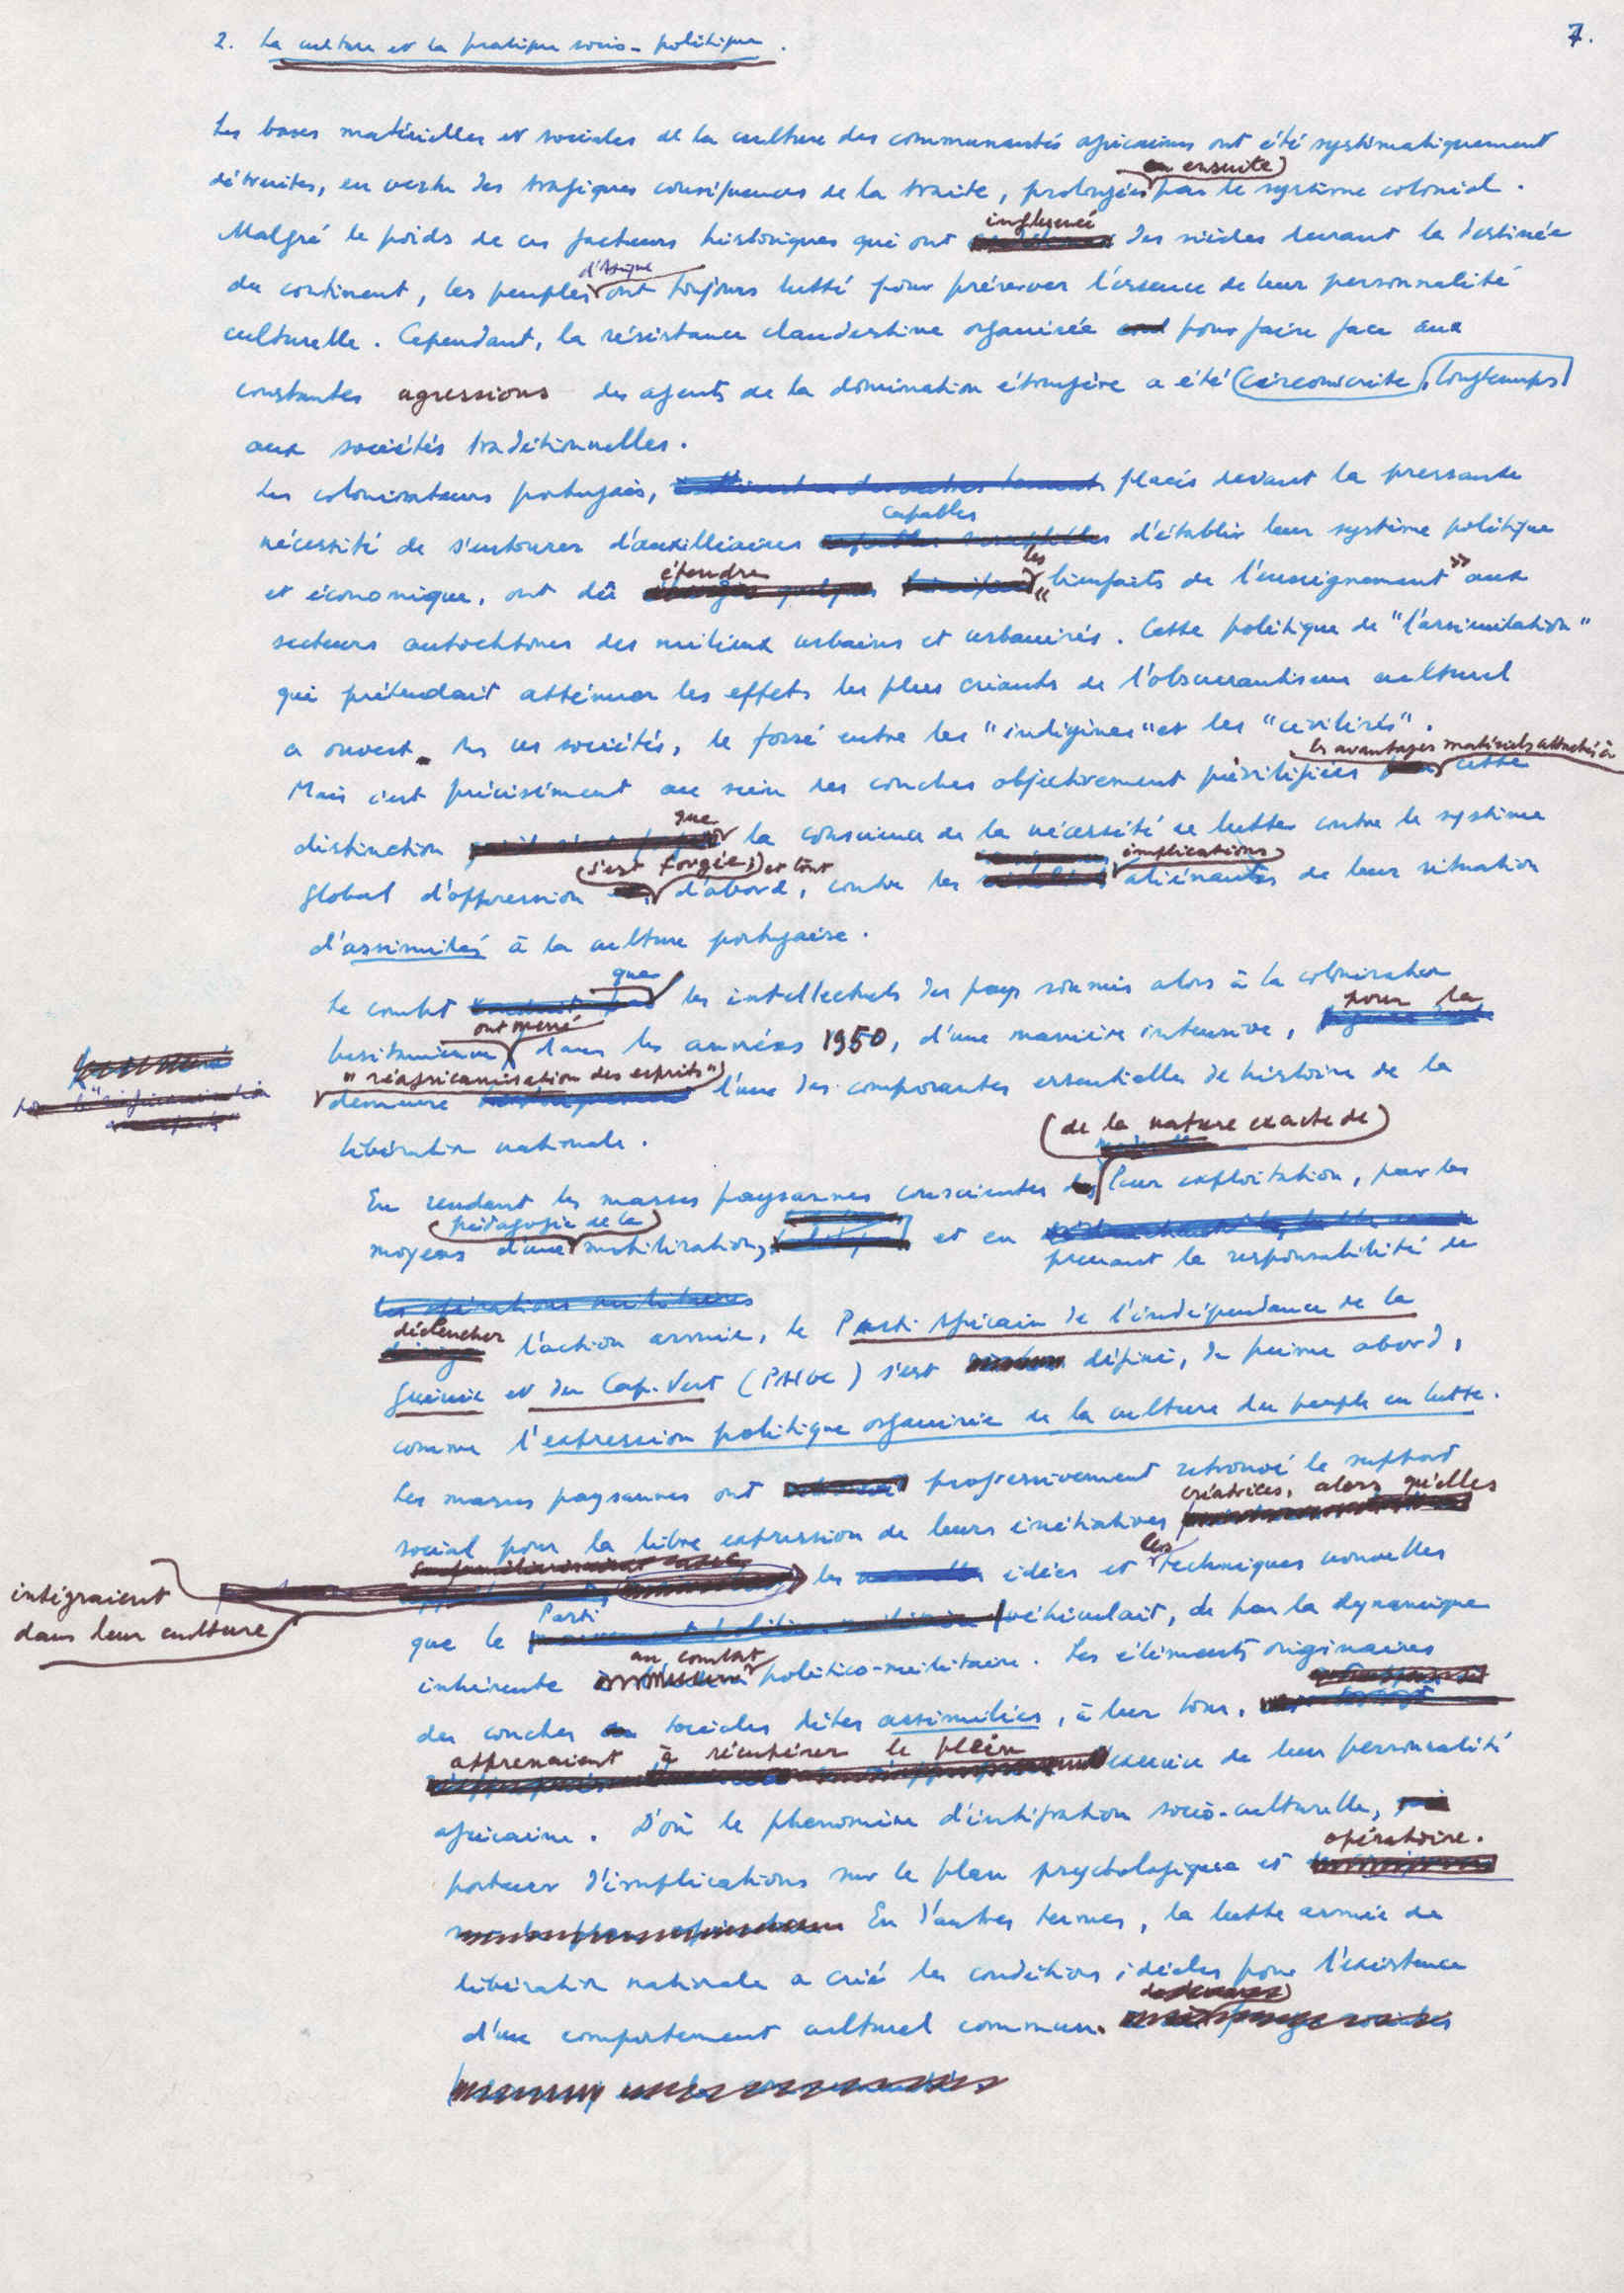 7.
2. La culture et la pratique socio-politique.
Les bases matérielles et sociales de la culture des communautés africaines ont été systématiquement
ensuite
détruites, en vertu des tragiques conséquences de la traite, prolongées par le système colonial.
influencé
Malgré le poids de ces facteurs historiques qui ont des siècles durant la destinée
d'Afrique
du continent, les peuples ont toujours lutté pour préserver l'essence de leur personnalité
culturelle. Cependant, la résistance clandestine organisée pour faire face aux
constantes agressions des agents de la domination étrangère a été circonscrite, longtemps
aux sociétés traditionnelles.
Les colonisateurs portugais, placés devant la pressante
capables
nécessité de s'entourer d'auxilliaires d'établir leur système politique
étendre les
et économique, ont dû "bienfaits de l'enseignement" aux
secteurs autochtones des milieux urbains et urbanisés. Cette politique de "l'assimilation"
qui prétendait atténuer les effets les plus criants de l'obscurantisme culturel
a ouvert ces sociétés, le fossé entre les "indigènes" et les "civilisés".
les avantages matériels attachés à
Mais c'est précisément au sein des couches objectivement privilégiées cette
que
distinction la conscience de la nécessité de lutter contre le système
s'est forgée, et tout implications
global d'oppression d'abord, contre les aliénantes de leur situation
d'assimilés à la culture portugaise.
que
Le combat les intellectuels des pays soumis alors à la colonisation
ont mené pour la
lusitanienne dans les années 1950, d'une manière intensive,
"réafricanisation des esprits"
demeure l'une des composantes essentielles de histoire de la
libération nationale.
(de la nature exacte de)
En rendant les masses paysannes conscientes leur exploitation, par les
pédagogie de la
moyens d'une mobilisation, et en
prenant la responsabilité de
les opérations militaires
déclencher
l'action armée, le Parti Africain de l'indépendance de la
Guinée et du Cap-Vert (PAIGC) s'est défini, de prime abord,
comme l'expression politique organisée de la culture du peuple en lutte.
Les masses paysannes ont progressivement retrouvé le support
créatrices, alors qu'elles
social pour la libre expression de leurs initiatives
les
intégraient
dans leur culture
les idées et techniques nouvelles
Parti
que le véhiculait, de par la dynamique
au combat
inhérente politico-militaire. Les éléments originaires
des couches sociales dites assimilées, à leur tour,
apprenaient à récupérer le plein
exercice de leur personnalité
africaine. D'où le phénomène d'intégration socio-culturelle,
opératoire.
porteur d'implications sur le plan psychologique et
En d'autres termes, la lutte armée de
libération nationale a créé les conditions idéales pour l'existence
d'un comportement culturel commun.